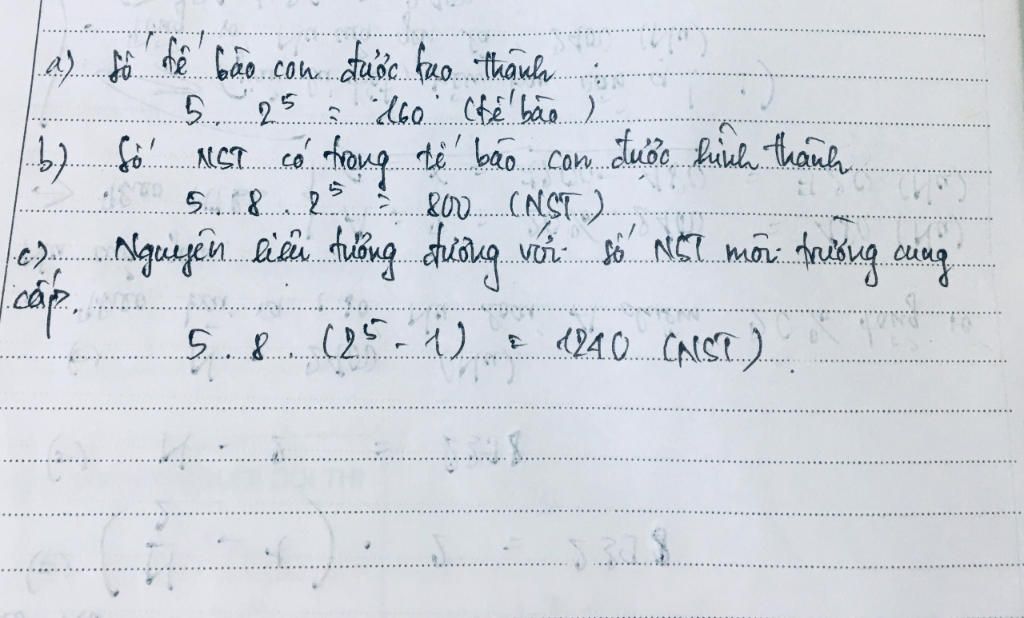 a) Số tế bào con được tạo thành :
5 . 2⁵ = 160 (tế bào)
b) Số NST có trong tế bào con được hình thành
5 . 8 . 2⁵ = 800 (NST)
c) Nguyên liệu tương đương với số NST môi trường cung
cấp.
5 . 8 . (2⁵ - 1) = 1240 (NST)